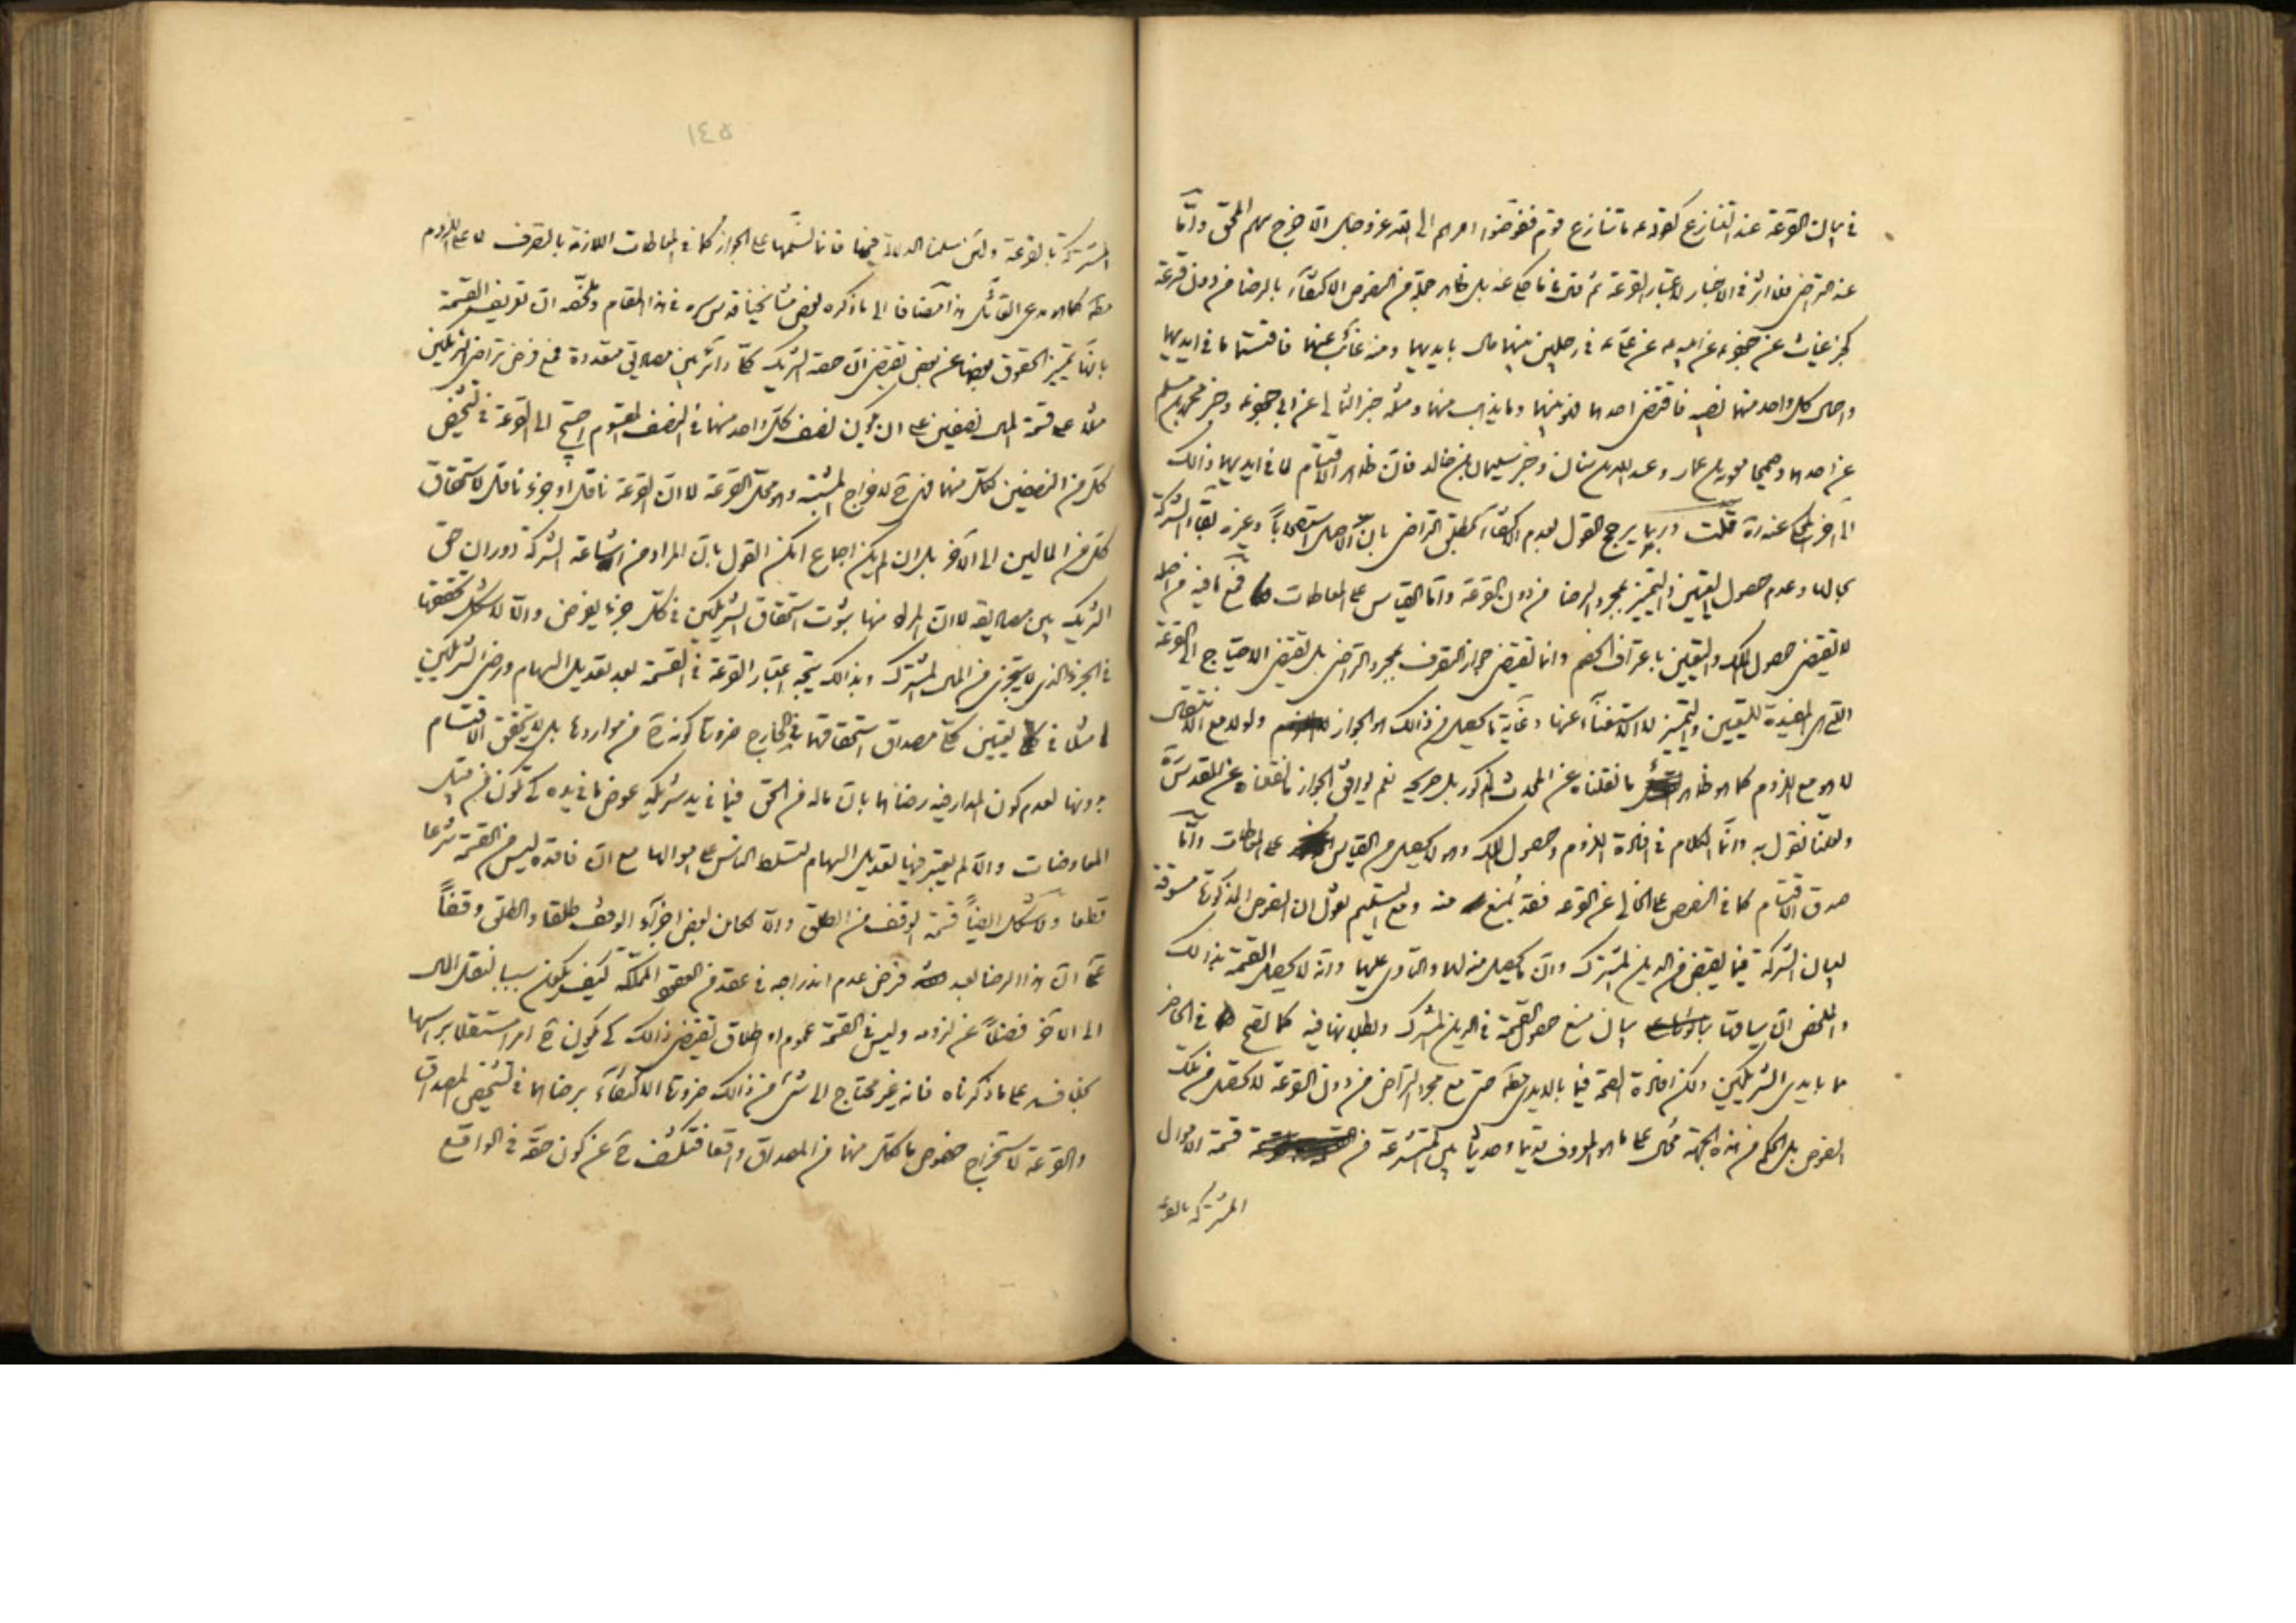 في بيان القرعة عند التنازع كقوله ما تنازع قوم ففوضوا امرهم الى الله عز وجل الا خرج سهم المحق واما
عند التراضي فلا اثر في الاخبار لاعتبار القرعة ثم قال في ما حكي عنه بل ظاهر جملة من النصوص الاكتفاء بالرضا من دون قرعة
كخبر غياث عن جعفر عن ابيه عن علي في رجلين بينهما مال بايديهما ومنه غائب عنهما فاقتسما ما في ايديهما
واحال كل واحد منهما بنصيبه فاقتضى احدهما للذي بينهما وما يذهب منهما ومثله خبر الثمالي عن ابي جعفر وخبر محمد بن مسلم
عن احدهما وصحيحا معوية بن عمار وعبد الله بن سنان وخبر سليمان بن خالد فان ظاهر الاقتسام لما في ايديهما وذلك
الى آخر المحكي عنه ره قلت وربما يرجح القول بعدم الاكتفاء بمطلق التراضي بان الاصل استصحابا وغيره بقاء الشركة
بحالها وعدم حصول التعيين والتميز بمجرد الرضا من دون القرعة واما القياس على المعاطات فمع ما فيه من اصله
لا يقتضي حصول الملك والتعيين باعتراف الخصم وانما يقتضي جواز التصرف بمجرد التراضي بل يقتضي الاحتياج الى القرعة
التي هي المفيدة للتعيين والتميز لا الاستغناء عنها وغاية ما يحصل من ذلك هو الجواز ولو لا مع الانتقال
لا هو مع اللزوم كما هو ظاهر ما نقلناه عن المحدث المذكور بل صريحه نعم يوافق الجواز ما نقلناه عن المقدس ره
ولعلنا نقول به وانما الكلام في افادة اللزوم وحصول الملك وهو لا يحصل من القياس على المعاطات واما
صدق الاقتسام كما في النصوص على الخالي عن القرعة فقد يمنع منه ومع التسليم نقول ان النصوص المذكورة مسوقة
لبيان الشركة فيما يقبض من الدين المشترك وان ما يحصل منه لهما والتاوي عليهما وانه لا يحصل القسمة بذلك
والملخص ان سياقها بيان منع حصول القسمة في الدين المشترك وبطلانها فيه كما تصح في الحاضر
مما بايدي الشريكين ولكن افادة الصحة فيما بالايدي مطلقا حتى مع مجرد التراضي من دون القرعة لا تحصل من تلك
النصوص بل الحكم من هذه الجهة محال على ما هو المعروف قديما وحديثا بين المتشرعة من قسمة الاموال
المشتركة بالقرعة
١٤٥
المشتركة بالقرعة ولئن سلمنا الدلالة فيها فانا نسلمها على الجواز كما في المعاطات اللازمة بالتصرف لا على اللزوم
مطلقا كما هو مدعى القائل هذا مضافا الى ما ذكره بعض مشايخنا قدس سره في هذا المقام وملخصه ان تعريف القسمة
بانها تميز الحقوق بعضها عن بعض يقتضي ان حصة الشريك كلي دائر بين مصاديق متعددة فمع فرض تراضي الشريكين
مثلا على قسمة المال نصفين على ان يكون نصف كل واحد منهما في النصف المقسوم احتيج الى القرعة في تشخيص
كل من النصفين لكل منهما فهي ح لاخراج المشتبه وهو محل القرعة لا ان القرعة ناقلة او جزء ناقل لاستحقاق
كل من المالين الى الآخر بل ان لم يكن اجماع امكن القول بان المراد من اشاعة الشركة دوران حق
الشريك بين مصاديقه لا ان المراد منها ثبوت استحقاق الشريكين في كل جزء يفرض والا لاشكل تحققها
في الجزء الذي لا يتجزى من المال المشترك وبذلك يتجه اعتبار القرعة في القسمة بعد تعديل السهام ورضى الشريكين
مثلا في تعيين كلي مصداق استحقاقهما في الخارج ضرورة كونه ح من مواردها بل لا يتحقق الاقتسام
بدونها لعدم كون المدار فيه رضاهما بان ماله من الحق فيما في يد شريكه عوض ما في يده كي تكون من قبيل
المعاوضات والا لم يعتبر فيها تعديل السهام لتسلط الناس على اموالها مع ان فاقده ليس من القسمة شرعا
قطعا ولاشكل ايضا قسمة الوقف من الطلق والا لكان بعض اجزاء الوقف طلقا والطلق وقفا
على ان هذا الرضا بعد فرض عدم اندراجه في عقد من العقود المملكة كيف يكون سببا لنقل المال
الى الآخر فضلا عن لزومه وليس في القسمة عموم او اطلاق يقتضي ذلك كي يكون ح امرا مستقلا براسها
بخلافه على ما ذكرناه فانه غير محتاج الى شئ من ذلك ضرورة الاكتفاء برضاهما في تشخيص المصداق
والقرعة لاستخراج خصوص ما لكل منهما من المصداق واقعا فتكشف ح عن كون حقه في الواقع